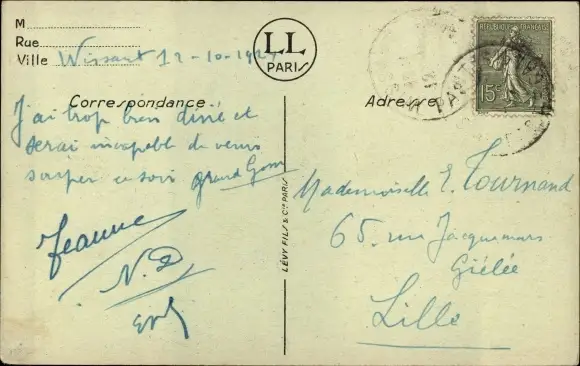 M
Rue
Ville Wissant 12-10-1924
LL
PARIS
REPUBLIQUE FRANÇAISE
15c
Correspondance
Adresse
J'ai trop bien diné et
serai incapable de venir
souper ce soir grand
Jeanne
N.D
LÉVY FILS & Cie PARIS
Mademoiselle E. Tournand
65, rue Jacquemars
Giélée
Lille